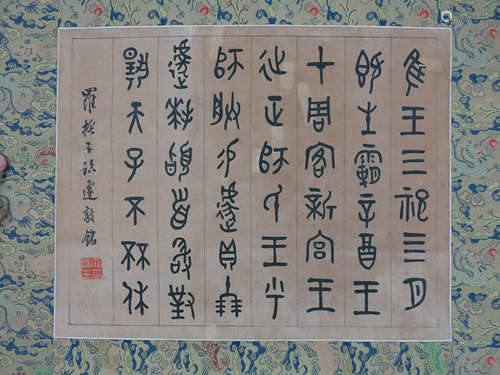 隹王三祀亖月
既生霸辛酉王
才周客新宮王
征正師氏王乎
師朕易遽貝十朋
遽拜䭫首敢對
揚天子不㱐休
羅振玉臨遽敦銘